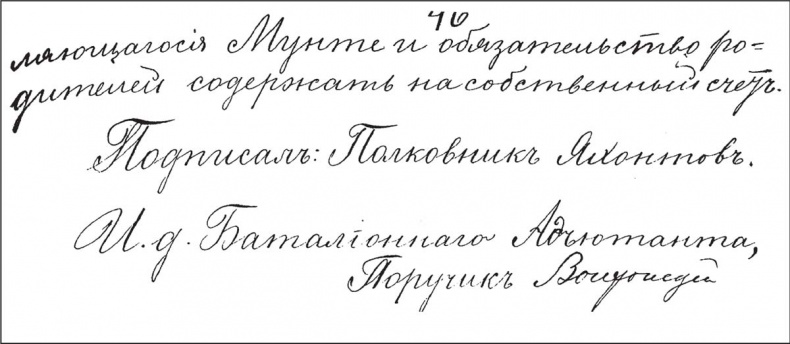 46
ляющагося Мунте и обязательство ро=
дителей содержать на собственный счетъ.
Подписалъ: Полковникъ Яхонтовъ.
И. д. Баталіоннаго Адъютанта,
Поручикъ